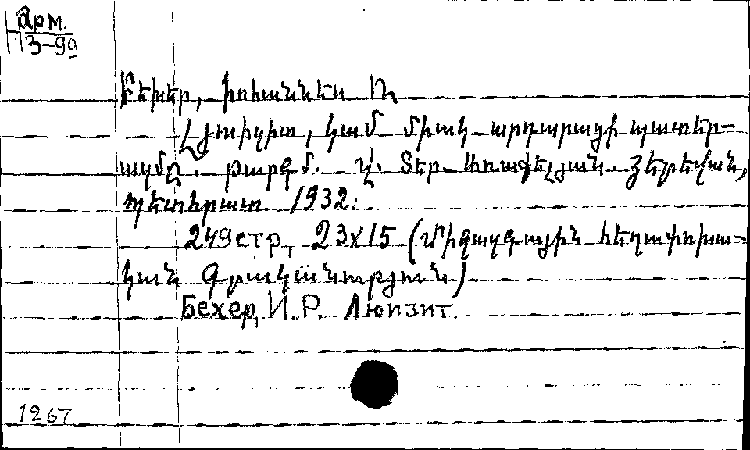 Арм.
3-99
Բեխեր, Իոհաննես Ռ.
Լյուիզիտ, կամ միակ արդարացի պատեր-
ազմը. թարգմ. Վ. Տեր-Առաքելյան. Յերեվան,
պետհրատ 1932:
249стр, 23x15 (Միջազգային հեղափոխա-
կան գրականություն)
Бехер, И. Р. Люизит.
1267